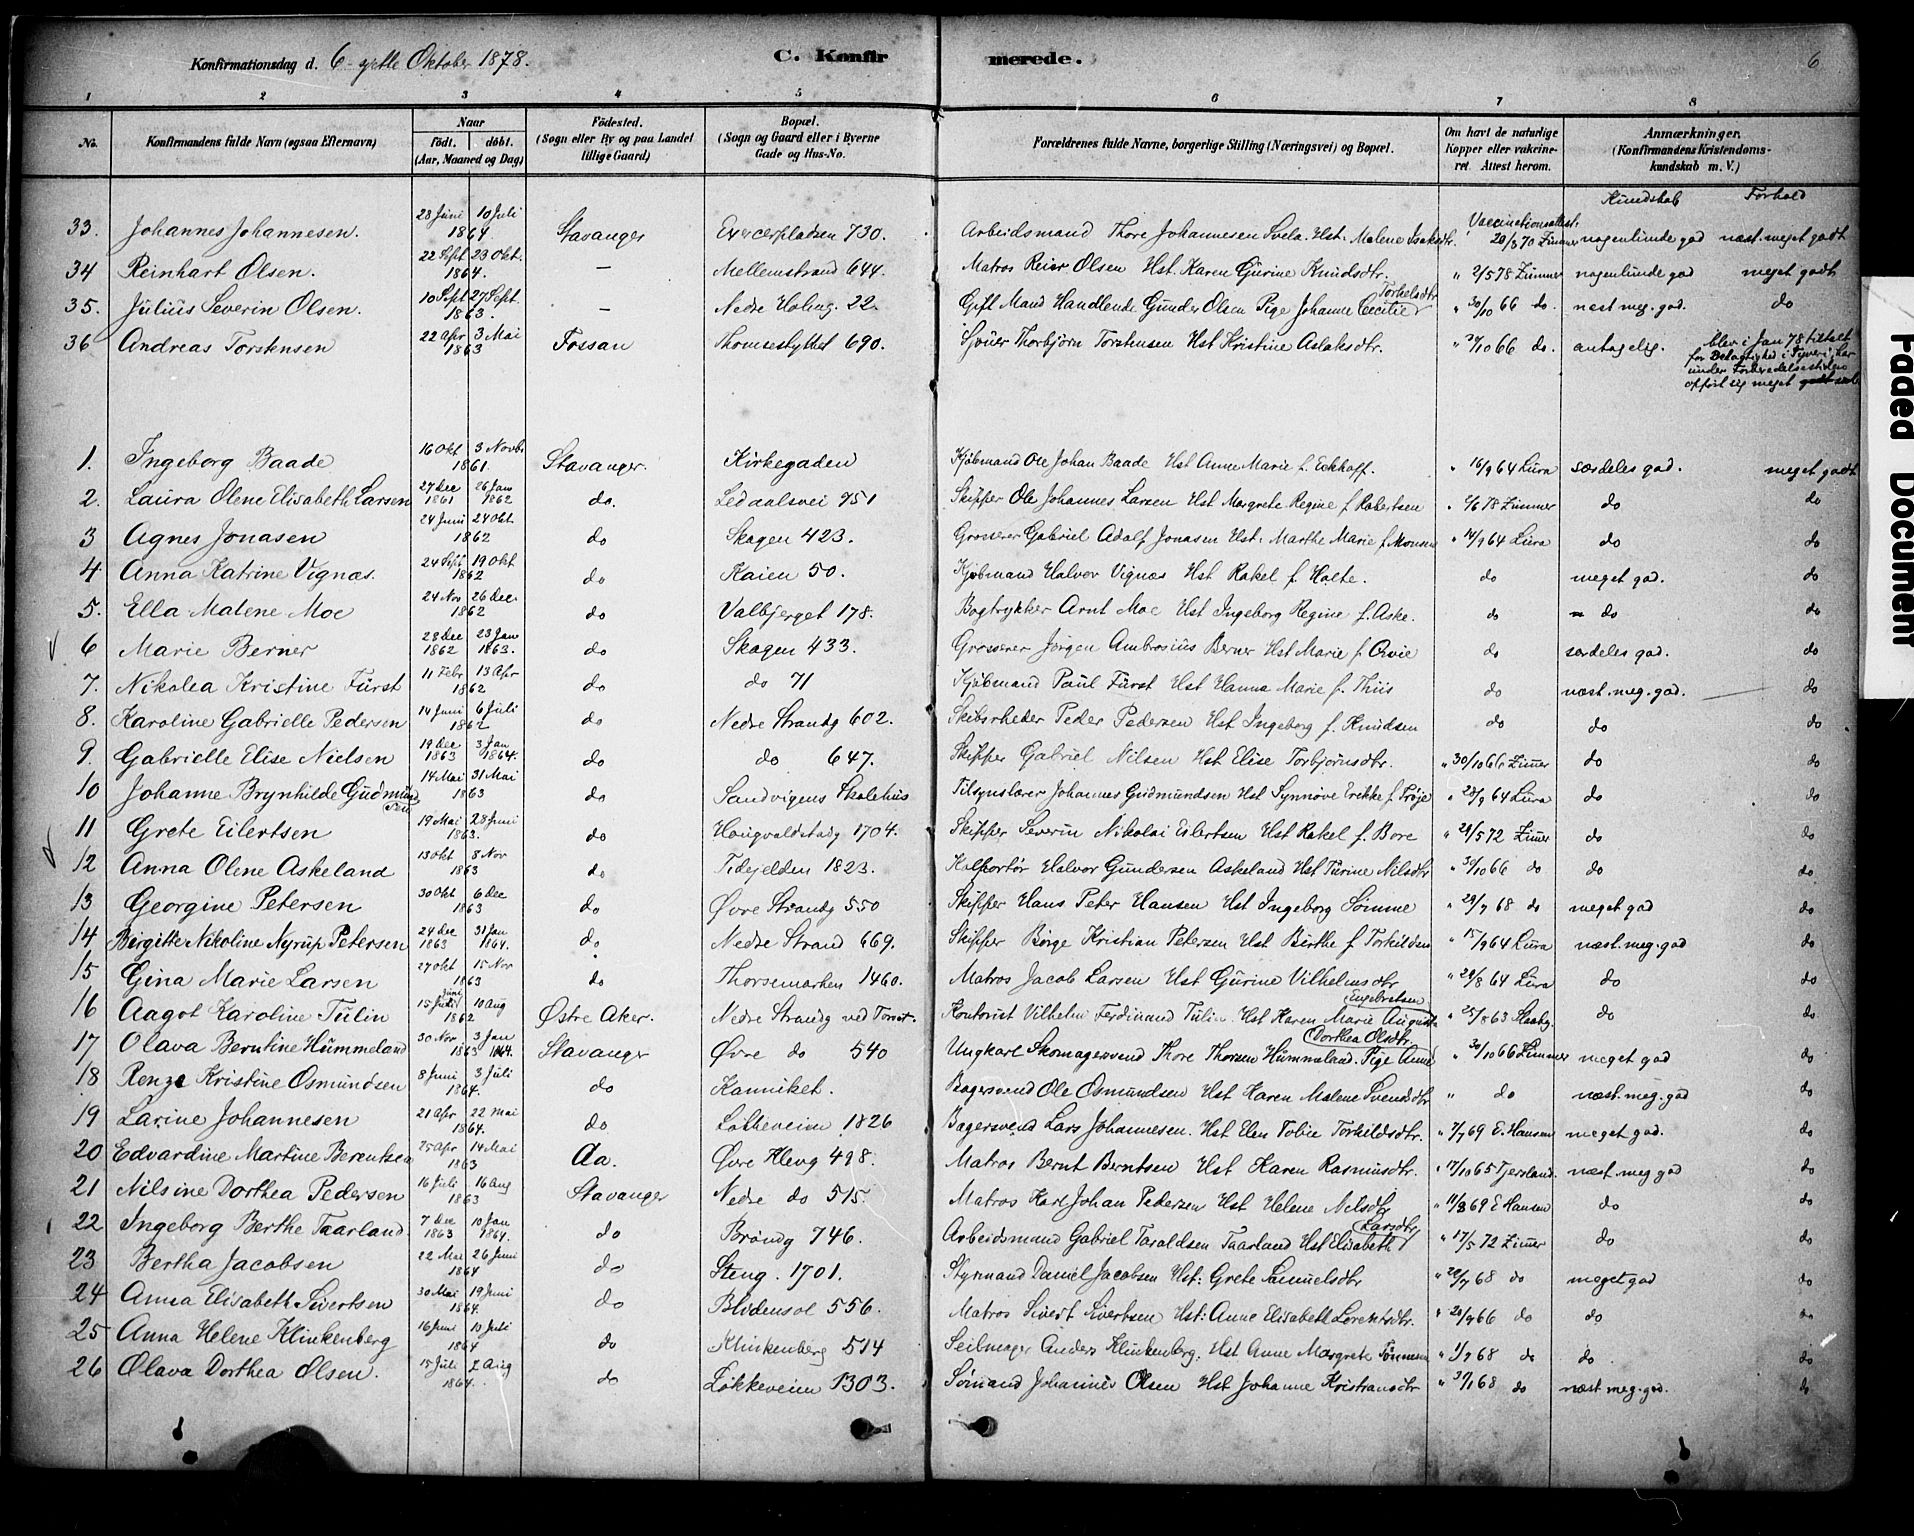 Konfirmationsdag d. 6-gtke Oktober 1878. C. Konfirmerede. 6
1 2 3 4 5 6 7 8
No. Konfirmandens fulde Navn (ogsaa Efternavn) Naar Födt. döbt. (Aar, Maaned og Dag) Födested. (Sogn eller By og paa Landet tillige Gaard) Bopæl. (Sogn og Gaard eller i Byerne Gade og Hus-No. Forældrenes fulde Navne, borgerlige Stilling (Næringsvei) og Bopæl. Om havt de naturlige Kopper eller vakcineret Attest herom. Anmærkninger. (Konfirmandens Kristendomskundskab m. V.)
Kundskab Forhold
33. Johannes Johannesen. 28 Juni 10 Juli 1864. Stavanger Exercerpladsen 730. Arbeidsmand Thore Johannesen Svela. Hst. Malene Isaksdtr. Vaccinationsattest. 20/3 70 Zimmer nogenlunde god næst. meget godt
34 Reinhart Olsen. 22 Sept 23 Okt. 1864. – Mellemstrand 644. Matros Reier Olsen Hst. Karen Gurine Knudsdtr. " 2/5 78 Zimmer nogenlunde god meget godt
35. Julius Severin Olsen. 10 Sept 27 Sept. 1863. – Nedre Holmg. 22. Gift Mand Handlende Gunder Olsen Pige Johanne Cecilie Torkelsdtr " 30/10 66 do. næst meg. god. do
36 Andreas Torstensen 22 Apr 3 Mai 1863 Fossan Thomsestyttet 690. Sjouer Thorbjørn Torstensen Hst Kristine Aslaksdtr. " 30/10 66 do. antagelig. blev i Jan 78 tiltalt for Delagtighed i Tyveri, har under Forberedelsestiden opført sig meget
1. Ingeborg Baade 16 Okt 3 Novb. 1861. Stavanger. Kirkegaden Kjøbmand Ole Johan Baade Hst Anne Marie f. Eckhoff. " 16/9 64 Lura særdeles god. meget godt
2. Laura Olene Elisabeth Larsen 27 Dec 1861 26 Jan 1862 do. Ledaalsvei 751 Skipper Ole Johannes Larsen Hst Margrete Regine f Robertsen " 6/6 78 Zimmer do do
3 Agnes Jonasen 24 Juni 24 Okt. 1862 do Skagen 423. Grosserer Gabriel Adolf Jonasen Hst: Marthe Marie f. Monsen " 14/9 64 Lura do do
4 Anna Katrine Vignæs. 24 Sept 19 Okt 1862 do Kaien 50. Kjøbmand Halvor Vignæs Hst Rakel f. Holte. do meget god. do
5. Ella Malene Moe 24 Nov 26 Dec. 1862 do Valbjerget 178. Bogtrykker Arnt Moe Hst Ingeborg Regine f. Aske. do do do
6 Marie Berner 28 Dec 1862 23 Jan 1863. do Skagen 433. Grosserer Jørgen Ambrosius Berner Hst Marie f. do særdeles god. do
7. Nikolea Kristine Fürst 11 Febr 13 Apr 1862 do do 71 Kjøbmand Paul Fürst Hst Hanna Marie f. Thiis do næst. meg. god. do
8. Karoline Gabrielle Pedersen 14 Juni 6 Juli 1862 do Nedre Strandg 602. Skibsrheder Peder Pedersen Hst Ingeborg f. Knudsen do do do
9. Gabrielle Elise Nielsen 19 Dec 1863 3 Jan 1864. do do 647. Skipper Gabriel Nilsen Hst Elise Torbjørnsdtr. " 30/10 66 Zimer do do
10 Johanne Brynhilde Gudmundsen 14 Mai 31 Mai 1863 do Sandvigens Skolehus Tilsynslærer Johannes Gudmundsen Hst Synnøve Erekke f. Trøje " 28/9 64 Lura do do
11 Grete Eilertsen 19 Mai 28 Juni 1863. do Haugvaldstadg 1704. Skipper Severin Nikolai Eilertsen Hst Rakel f. Bore " 28/5 72 Zimer do do
12 Anna Olene Askeland 13 Okt 8 Nov 1863 do Tidejelden 1823. Kolportør Halvor Gundersen Askeland Hst Turine Nilsdtr " 30/10 66 do do do
13 Georgine Petersen 30 Okt 6 Dec 1863 do Øvre Strandg 550 Skipper Hans Peter Hansen Hst Ingeborg Sømme " 29/7 68 do meget god do
14 Birgitte Nikoline Nyrup Petersen 24 Dec 1863 31 Jan 1864. do Nedre Strand 669. Skipper Børge Kristian Petersen Hst Birthe f Torkildsen " 15/9 64 Lura næst. meg. god do
15 Gina Marie Larsen 27 Okt 15 Nov 1863 do Thorsemarken 1460. Matros Jacob Larsen Hst Gurine Vilhelmsdtr " 29/8 64 Lura do do
16 Aagot Karoline Tulin 15 Juni 10 Aug 1862 Østre Aker. Nedre Strandg ved Torvet Kontorist Vilhelm Ferdinand Tulin Hst Karen Marie Augusta Engebretsen " 25/8 63 do do
17 Olava Berntine Hummeland 30 Nov 1863 3 Jan 1864. Stavanger Øvre do 540 Ungkarl Skomagersvend Thore Thorsen Hummeland. Pige Anne Dorthea Olsdtr. " 30/10 66 Zimmer meget god do
18 Renze Kristine Osmundsen 8 Juni 3 Juli 1864. do Kanniket. Bagersvend Ole Osmundsen Hst Karen Malene Svendsdtr " do næst. meg. god do
19 Larine Johannesen 21 Apr 22 Mai 1864. do Løkkeveien 1826 Bagersvend Lars Johannesen. Hst Elen Tobie Torkildsdtr. " 7/7 69 E. Hansen meget god. do
20 Edvardine Martine Berentsen 25 Apr 14 Mai 1863 Aa. Øvre Klevg 498. Matros Bernt Berntsen Hst Karen Rasmusdtr. " 17/10 65 Tjersland næst. meg god do
21 Nilsine Dorthea Pedersen 16 Juli 16 Aug 1863 Stavanger Nedre do 515. Matros Karl Johan Pedersen Hst Helene Nilsdtr " 11/8 69 E Hansen do do
22 Ingeborg Berthe Taarland. 7 Dec 1863 10 Jan 1864. do Brøndg 746. Arbeidsmand Gabriel Taraldsen Taarland Hst Elisabeth Larsdtr " 17/5 72 Zimer do do
23 Bertha Jacobsen 22 Mai 26 Juni 1864 do Steng. 1701. Styrmand Daniel Jacobsen Hst: Grete Samuelsdtr " 28/7 68 do meget god do
24 Anna Elisabeth Sivertsen 30 Mai 19 Juni 1864. do Blidensol 556. Matros Sivert Sivertsen Hst: Anne Elisabeth Lorentsdtr. " 20/9 66 do do do
25 Anna Helene Klinkenberg 16 Juni 10 Juli 1864 do Klinkenberg 514 Seilmager Anders Klinkenberg. Hst Anne Margrete Tønnesen " 1/7 68 do do do
26 Olava Dorthea Olsen. 15 Juli 7 Aug 1864. do Løkkeveien 1303. Sømand Johannes Olsen Hst Johanne Kristiansdtr " 31/1 68 do næst meg. god. do
Faded Document